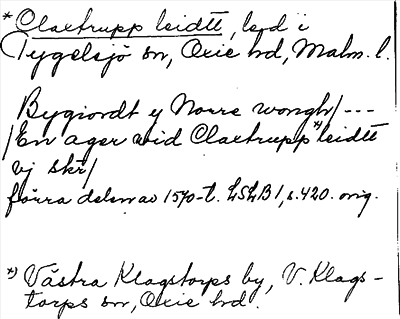 * Claxtrupp leidtt, led i
Tygelsjö sn, Oxie hd, Malm. l.
Bygiordt y Norre wongh/ ---
/En ager wid Claxtrupp *) leidtt
vj skr/
förra delen av 1570-t. LSLB 1, s. 420. orig.
*) Västra Klagstorps by, V. Klags-
torps sn, Oxie hd.